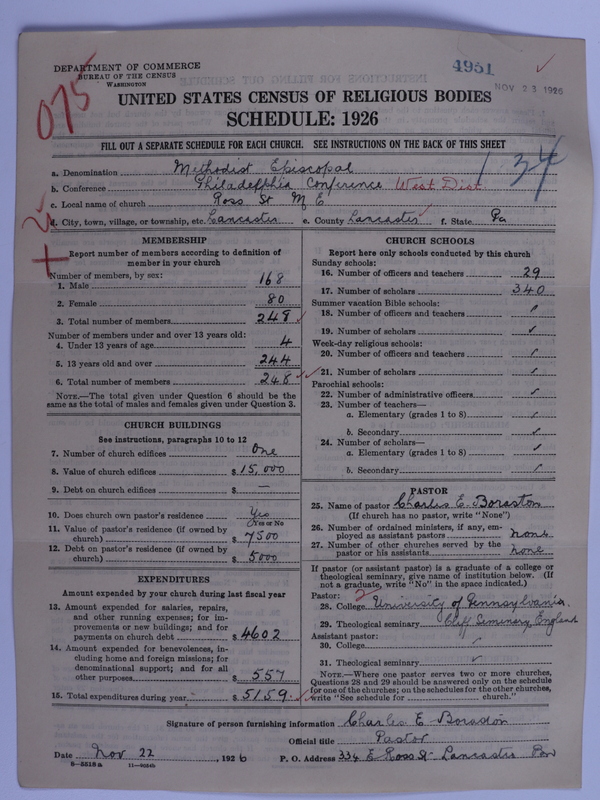 4951
NOV 23 1926
DEPARTMENT OF COMMERCE
BUREAU OF THE CENSUS
WASHINGTON
075
UNITED STATES CENSUS OF RELIGIOUS BODIES
SCHEDULE: 1926
FILL OUT A SEPARATE SCHEDULE FOR EACH CHURCH. SEE INSTRUCTIONS ON THE BACK OF THIS SHEET
134
a. Denomination Methodist Episcopal
b. Conference Philadelphia Conference West Dist.
c. Local name of church Ross St M E
d. City, town, village, or township, etc. Lancaster e. County Lancaster f. State Pa
MEMBERSHIP
Report number of members according to definition of
member in your church
Number of members, by sex:
1. Male 168
2. Female 80
3. Total number of members 248
Number of members under and over 13 years old:
4. Under 13 years of age 4
5. 13 years old and over 244
6. Total number of members 248
NOTE.—The total given under Question 6 should be the
same as the total of males and females given under Question 3.
CHURCH BUILDINGS
See instructions, paragraphs 10 to 12
7. Number of church edifices One
8. Value of church edifices $ 15,000
9. Debt on church edifices $ —
10. Does church own pastor's residence Yes
(Yes or No)
11. Value of pastor's residence (if owned by
church) $ 7500
12. Debt on pastor's residence (if owned by
church) $ 5000
EXPENDITURES
Amount expended by your church during last fiscal year
13. Amount expended for salaries, repairs,
and other running expenses; for im-
provements or new buildings; and for
payments on church debt $ 4602
14. Amount expended for benevolences, in-
cluding home and foreign missions; for
denominational support; and for all
other purposes $ 557
15. Total expenditures during year $ 5159
CHURCH SCHOOLS
Report here only schools conducted by this church
Sunday schools:
16. Number of officers and teachers 29
17. Number of scholars 340
Summer vacation Bible schools:
18. Number of officers and teachers
19. Number of scholars
Week-day religious schools:
20. Number of officers and teachers
21. Number of scholars
Parochial schools:
22. Number of administrative officers
23. Number of teachers—
a. Elementary (grades 1 to 8)
b. Secondary
24. Number of scholars—
a. Elementary (grades 1 to 8)
b. Secondary
PASTOR
25. Name of pastor Charles E. Boraston
(If church has no pastor, write "None")
26. Number of ordained ministers, if any, em-
ployed as assistant pastors none
27. Number of other churches served by the
pastor or his assistants none
If pastor (or assistant pastor) is a graduate of a college or
theological seminary, give name of institution below. (If
not a graduate, write "No" in the space indicated.)
Pastor:
28. College University of Pennsylvania.
29. Theological seminary Cliff Seminary, England
Assistant pastor:
30. College
31. Theological seminary
NOTE.—Where one pastor serves two or more churches,
Questions 28 and 29 should be answered only on the schedule
for one of the churches; on the schedules for the other churches,
write "See schedule for church."
Signature of person furnishing information Charles E Boraston
Official title Pastor
Date Nov 22, 1926 P. O. Address 334 E Ross St Lancaster Pa
8—5518 a 11—9024b